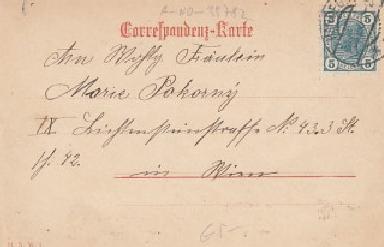 A-NO-35782
Correspondenz-Karte
An Wohlg Fräulein
Marie Pokorný
IX Lichtensteinstrasse No 433 St.
in Wien
65.-
5 5
5 5